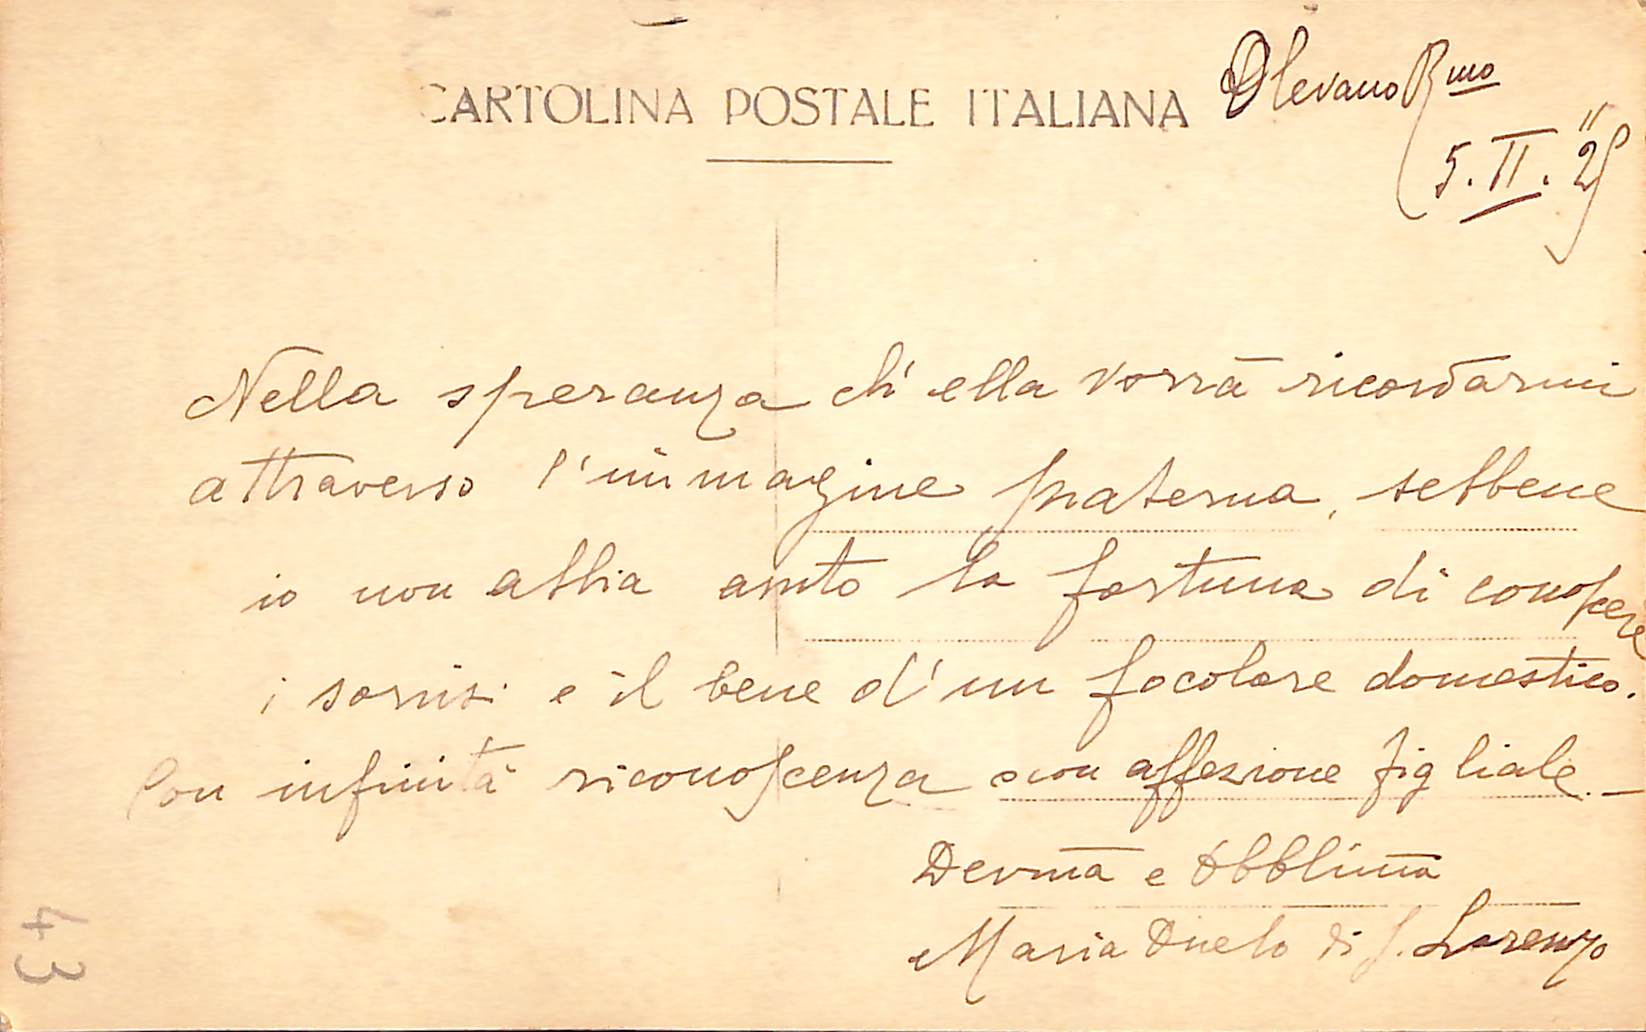 CARTOLINA POSTALE ITALIANA
Olevano Rmo
5. II. "25
Nella speranza ch' ella vorrà ricordarmi
attraverso l'immagine paterna, sebbene
io non abbia avuto la fortuna di conoscere
i sorrisi e il bene d'un focolare domestico.
Con infinità riconoscenza e con affezione figliale. -
Devma e Obblma
Maria Duelo di S. Lorenzo
43